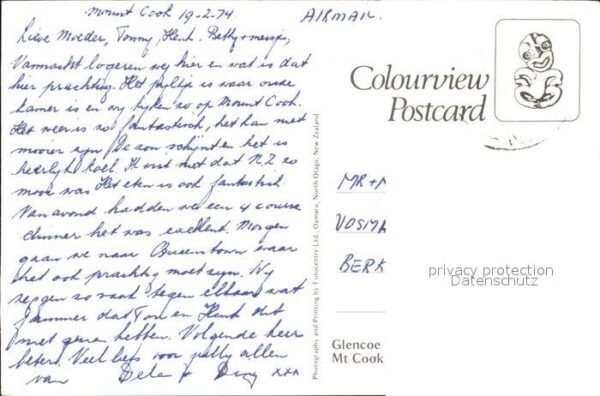 Mount Cook 19-2-74.
AIRMAIL.
Lieve Moeder, Tonny, Henk. Betty + meisjes,
Vannacht logeren wij hier en wat is dat
hier prachtig. Het pijltje is waar onze
kamer is en wij kijken zo op Mount Cook.
Het weer is zo fantastisch, het kan niet
mooier zijn. De zon schijnt en het is
heerlijk koel. Ik wist niet dat N.Z. zo
mooi was. Het eten is ook fantastisch
Vanavond hadden we een 4 course
dinner het was excellent. Morgen
gaan we naar Queenstown waar
het ook prachtig moet zijn. Wij
zeggen zo vaak tegen elkaar wat
jammer dat Ton en Henk dit
niet gezien hebben. Volgende keer
beter. Veel liefs voor jullie allen
van xxx
Colourview
Postcard
Photography and Printing by Fotocentre Ltd., Oamaru, North Otago, New Zealand.
MR + M
VOSMA
BERK
privacy protection
Datenschutz
Glencoe
Mt Cook